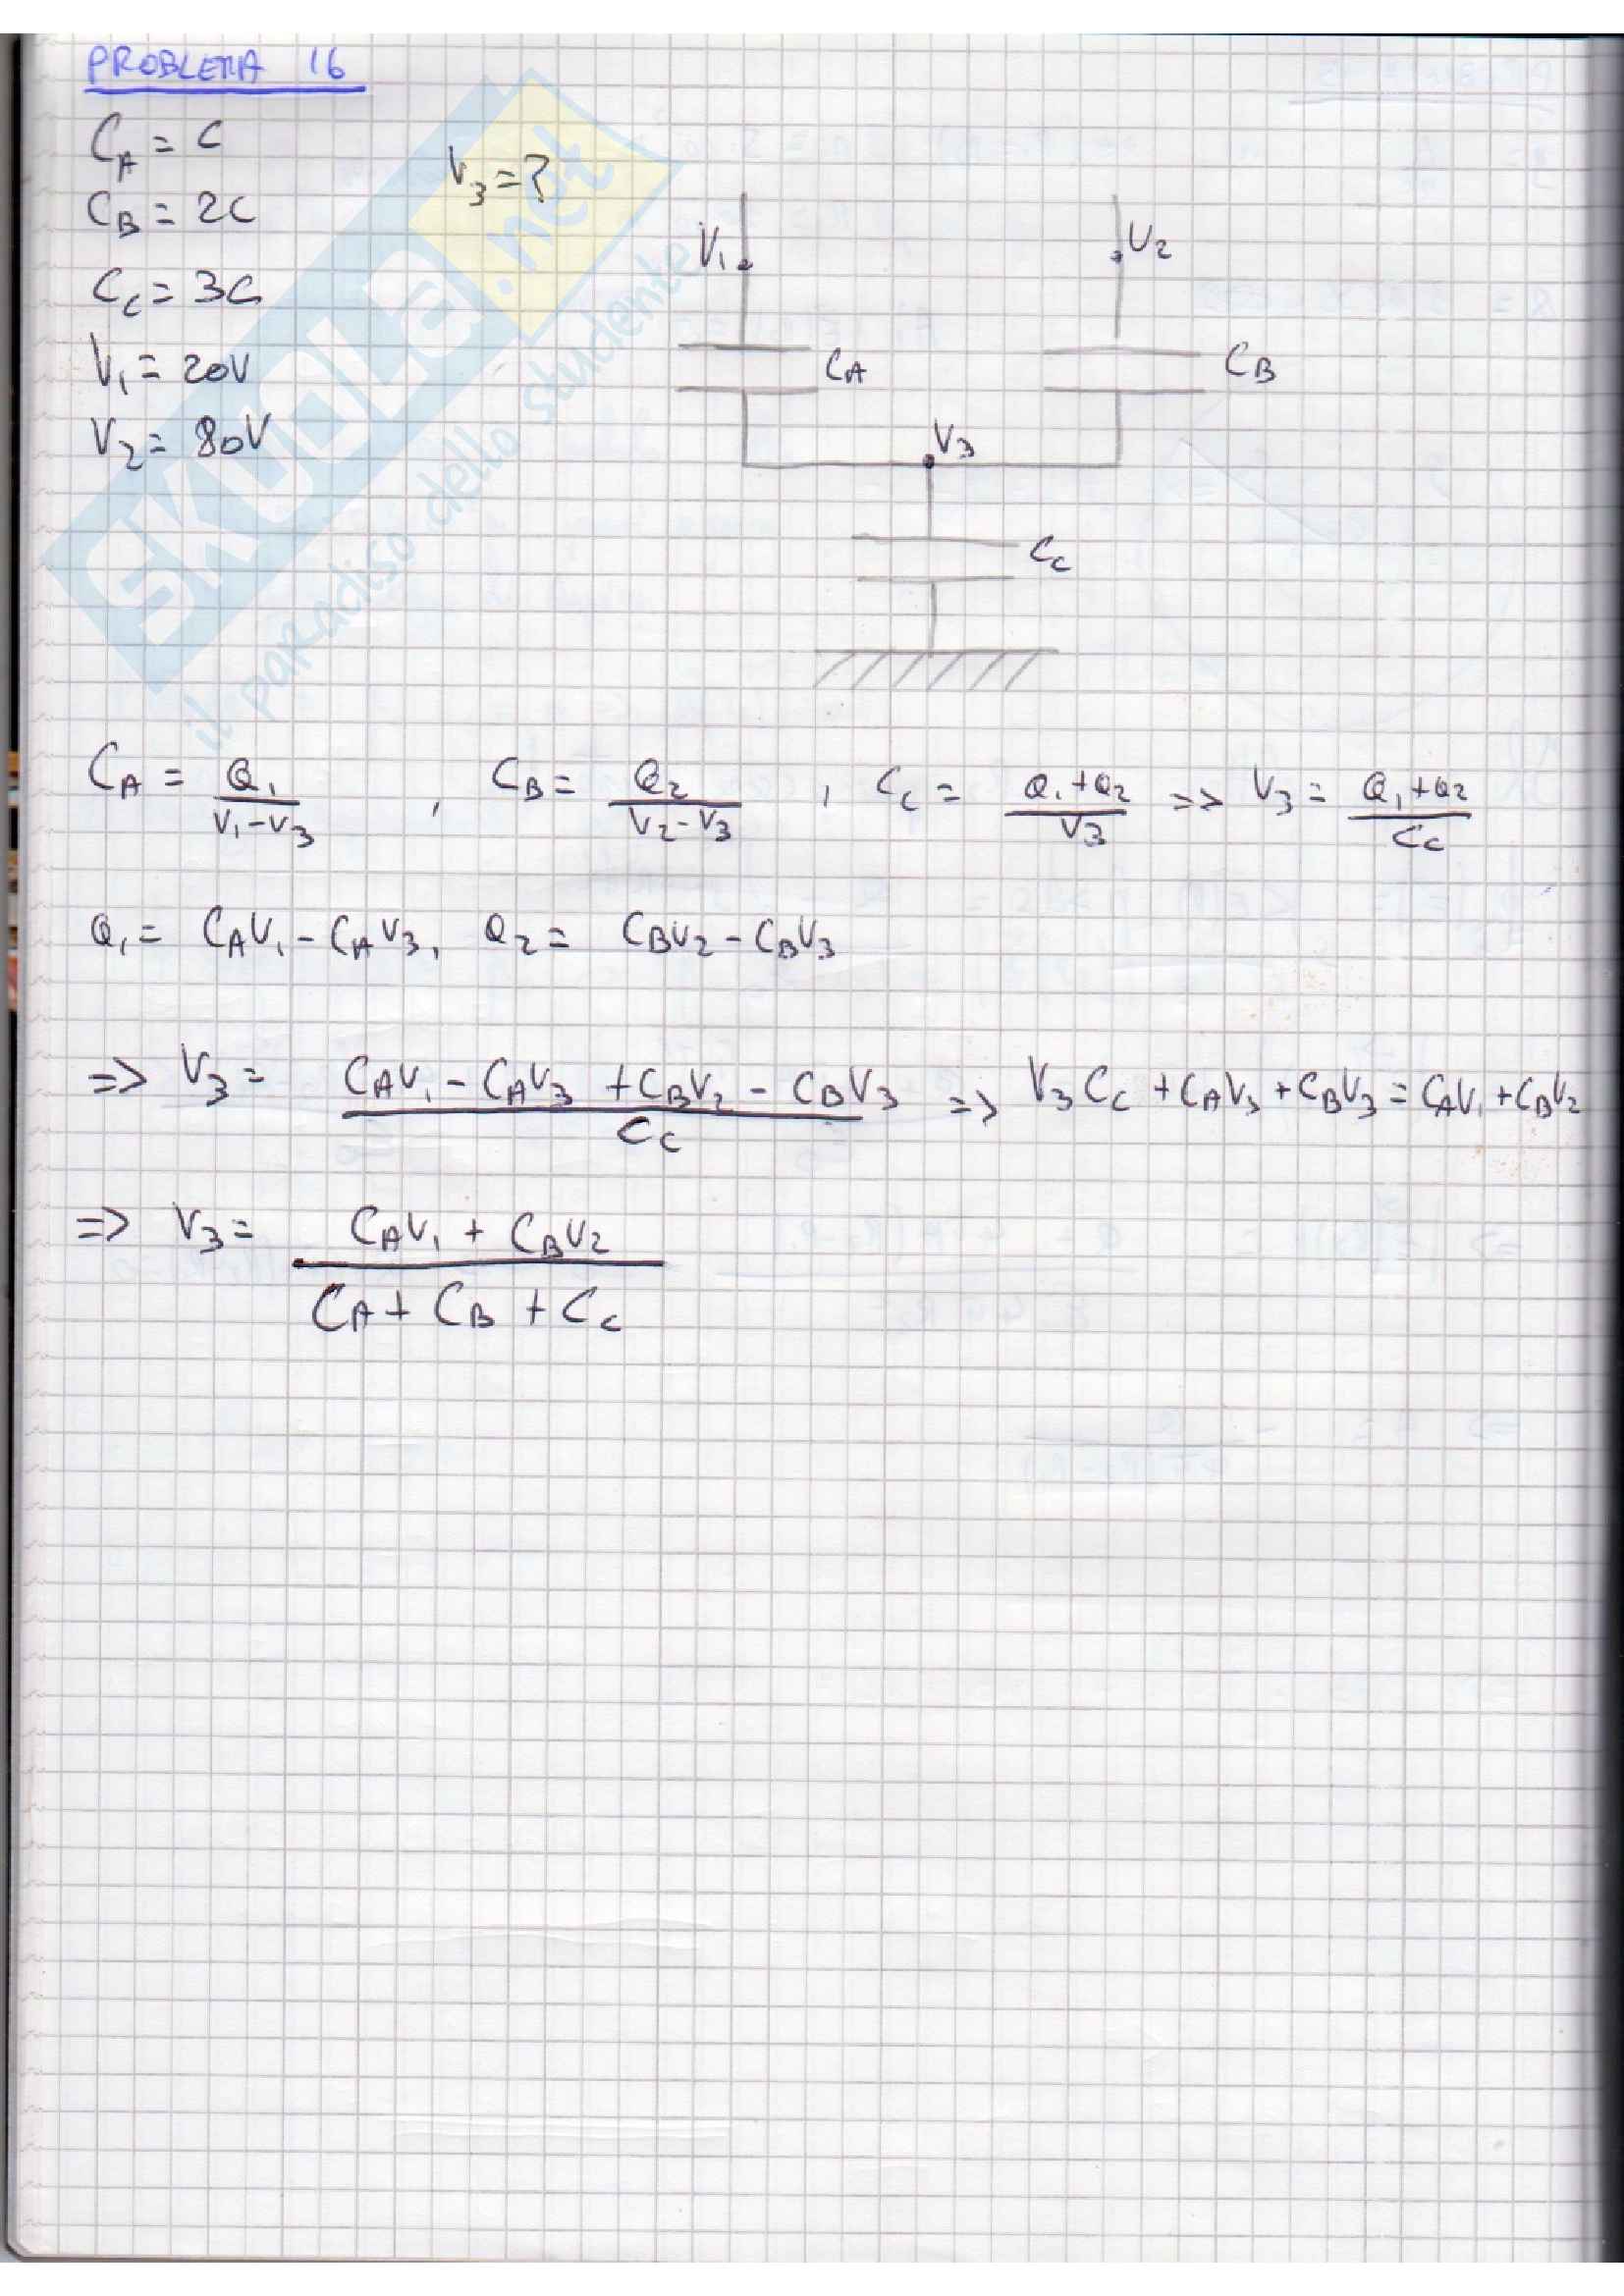 PROBLEMA 16
C_A = C
V_3 = ?
C_B = 2C
C_C = 3C
V_1 = 20V
V_2 = 80V
V_1
V_2
C_A
C_B
V_3
C_C
SKUOLA.net
il paradiso dello studente
C_A = Q_1 / (V_1 - V_3) , C_B = Q_2 / (V_2 - V_3) , C_C = (Q_1 + Q_2) / V_3 => V_3 = (Q_1 + Q_2) / C_C
Q_1 = C_A V_1 - C_A V_3, Q_2 = C_B V_2 - C_B V_3
=> V_3 = (C_A V_1 - C_A V_3 + C_B V_2 - C_B V_3) / C_C => V_3 C_C + C_A V_3 + C_B V_3 = C_A V_1 + C_B V_2
=> V_3 = (C_A V_1 + C_B V_2) / (C_A + C_B + C_C)